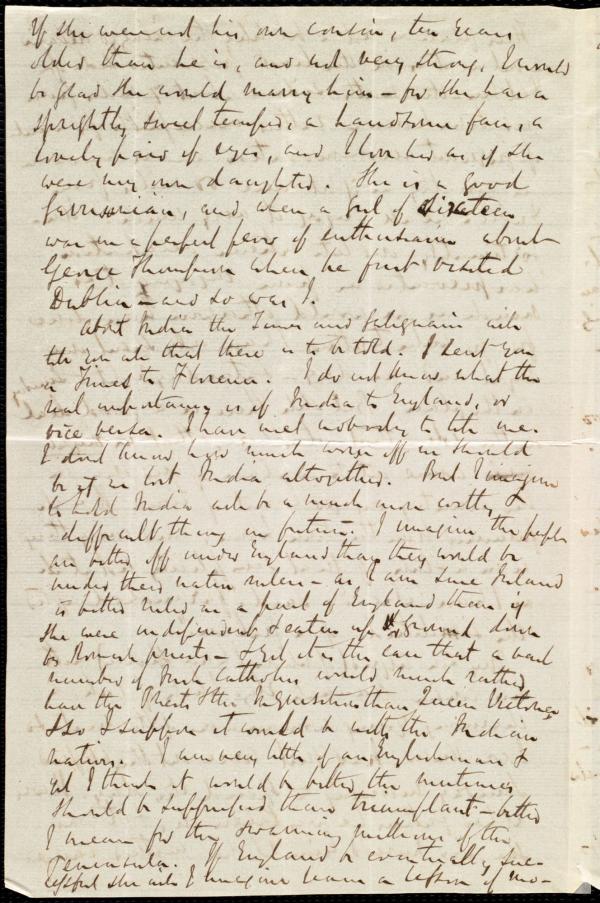 If she were not his own cousin, ten years
older than he is, and not very strong, I would
be glad she would marry him – for she has a
sprightly sweet temper, a handsome face, a
lovely pair of eyes, and I love her as if she
were my own daughter. She is a good
Garrisonian, and when a girl of sixteen
was in a perfect fever of enthusiasm about
George Thompson when he first visited
Dublin – and so was I.
About India the Times and Galignani will
tell you all that there is to be told. I sent you
a Times to Florence. I do not know what the
real importance is of India to England, or
vice versa. I have met nobody to tell me.
I don't know how much worse off we should
be if we lost India altogether. But I imagine
to hold India will be a much more costly &
difficult thing in future. I imagine the people
are better off under England than they would be
under their native rulers – as I am sure Ireland
is better ruled as a part of England than if
she were independent & eaten up & ground down
by Romish priests – & yet it is the case that a vast
number of Irish Catholics would much rather
have the Priests & the Inquisition than Queen Victoria
& so I suppose it would be with the Indian
nations. I am very little of an Englishman &
yet I think it would be better the mutineers
should be suppressed than triumphant – better
I mean for the swarming millions of the
Peninsula. If England be eventually suc-
cessful she will I imagine learn a lesson of mo-